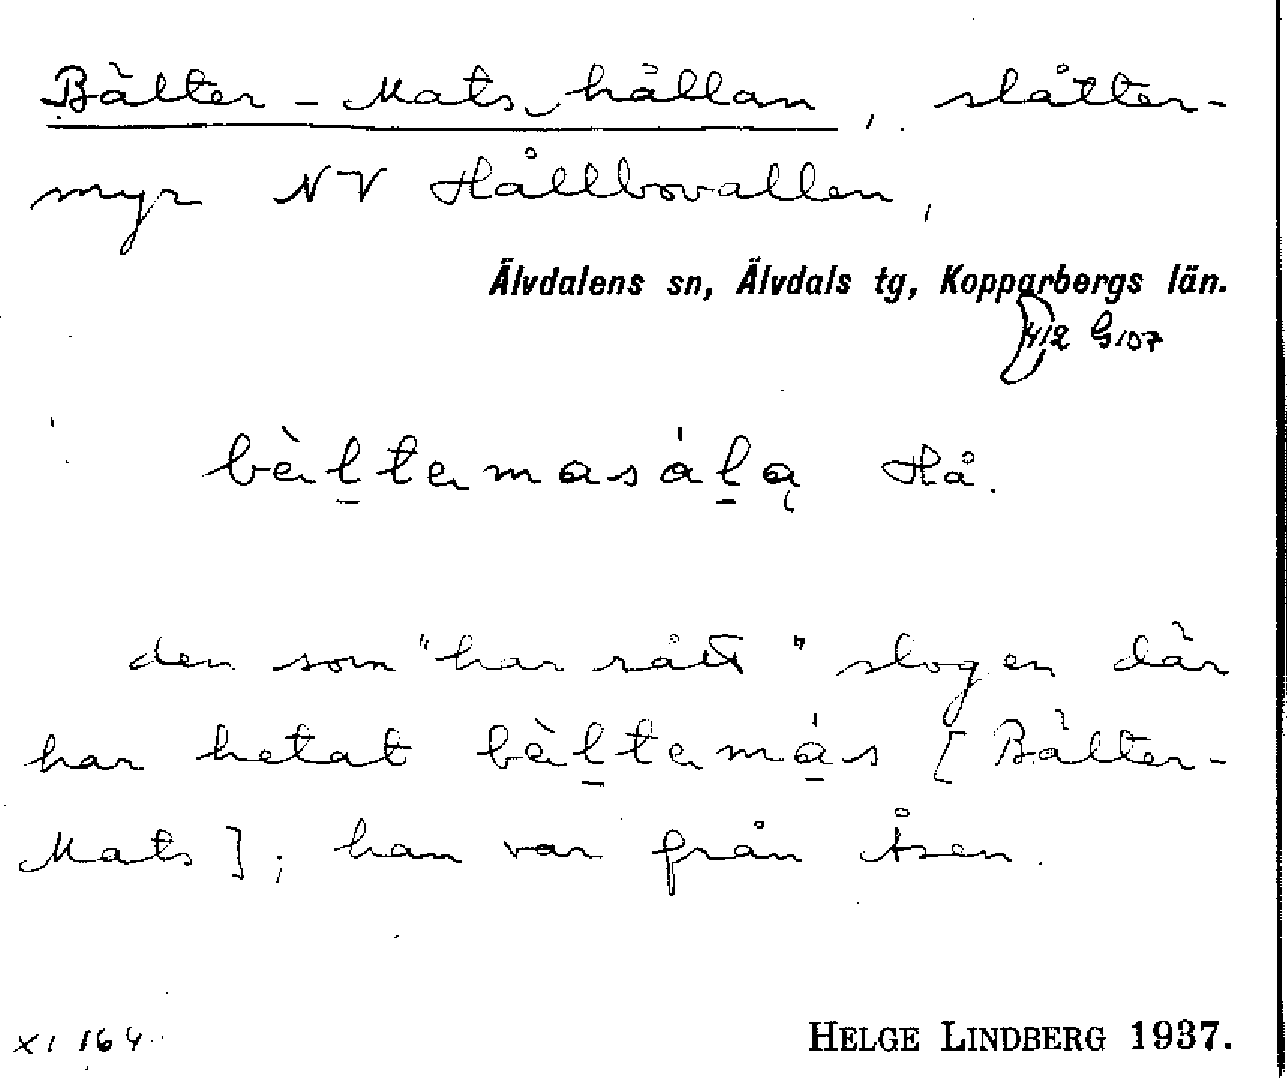 Bälter-Mats hållan, slåtter-
myr NV Hållbovallen,
Älvdalens sn, Älvdals tg, Kopparbergs län.
bèḻtemasáḻą Hå.
den som "har rått" slogen där
har hetat bèḻtemás [Bälter-
Mats]; han var från Åsen.
XI 164
HELGE LINDBERG 1937.